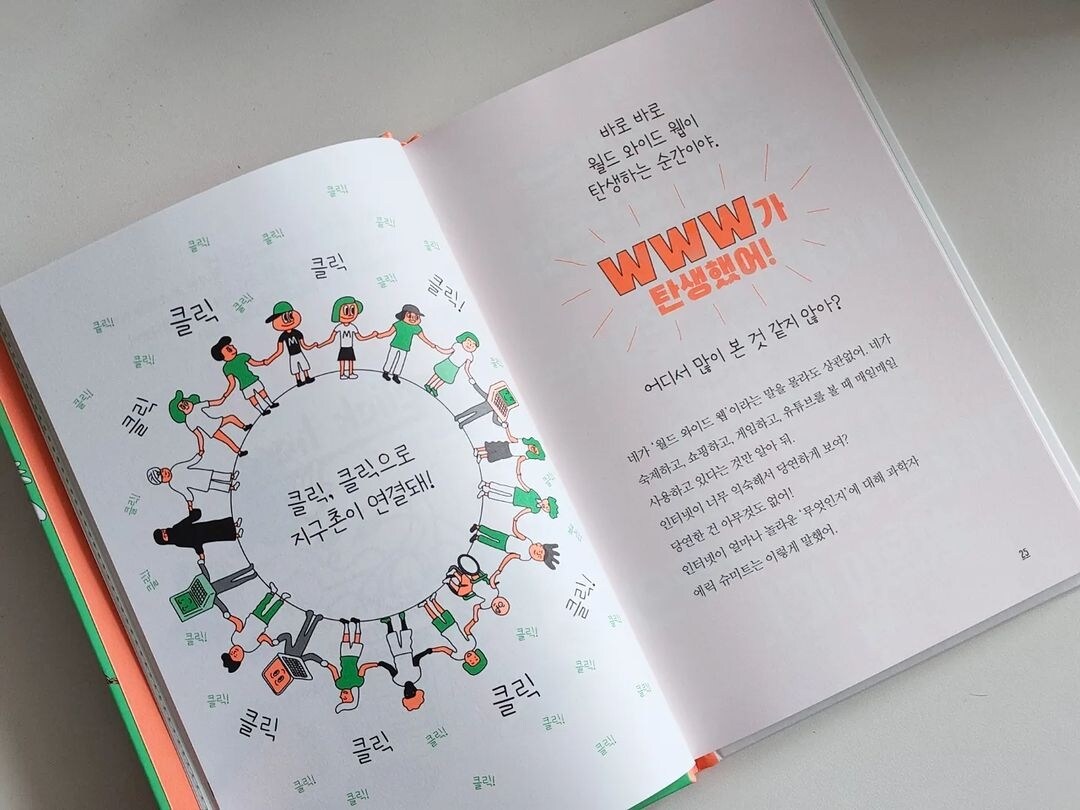 클릭!
클릭!
클릭!
클릭!
클릭!
클릭
클릭!
클릭!
클릭
클릭!
클릭!
클릭!
클릭!
클릭
클릭, 클릭으로
지구촌이 연결돼!
클릭!
클릭!
클릭!
클릭!
클릭!
클릭!
클릭!
클릭!
클릭
클릭!
클릭
클릭
클릭!
클릭!
클릭!
클릭!
클릭!
클릭!
M
M
바로 바로
월드 와이드 웹이
탄생하는 순간이야.
WWW가
탄생했어!
어디서 많이 본 것 같지 않아?
네가 '월드 와이드 웹'이라는 말을 몰라도 상관없어. 네가
숙제하고, 쇼핑하고, 게임하고, 유튜브를 볼 때 매일매일
사용하고 있다는 것만 알아 둬.
인터넷이 너무 익숙해서 당연하게 보여?
당연한 건 아무것도 없어!
인터넷이 얼마나 놀라운 '무엇인지'에 대해 과학자
에릭 슈미트는 이렇게 말했어.
25